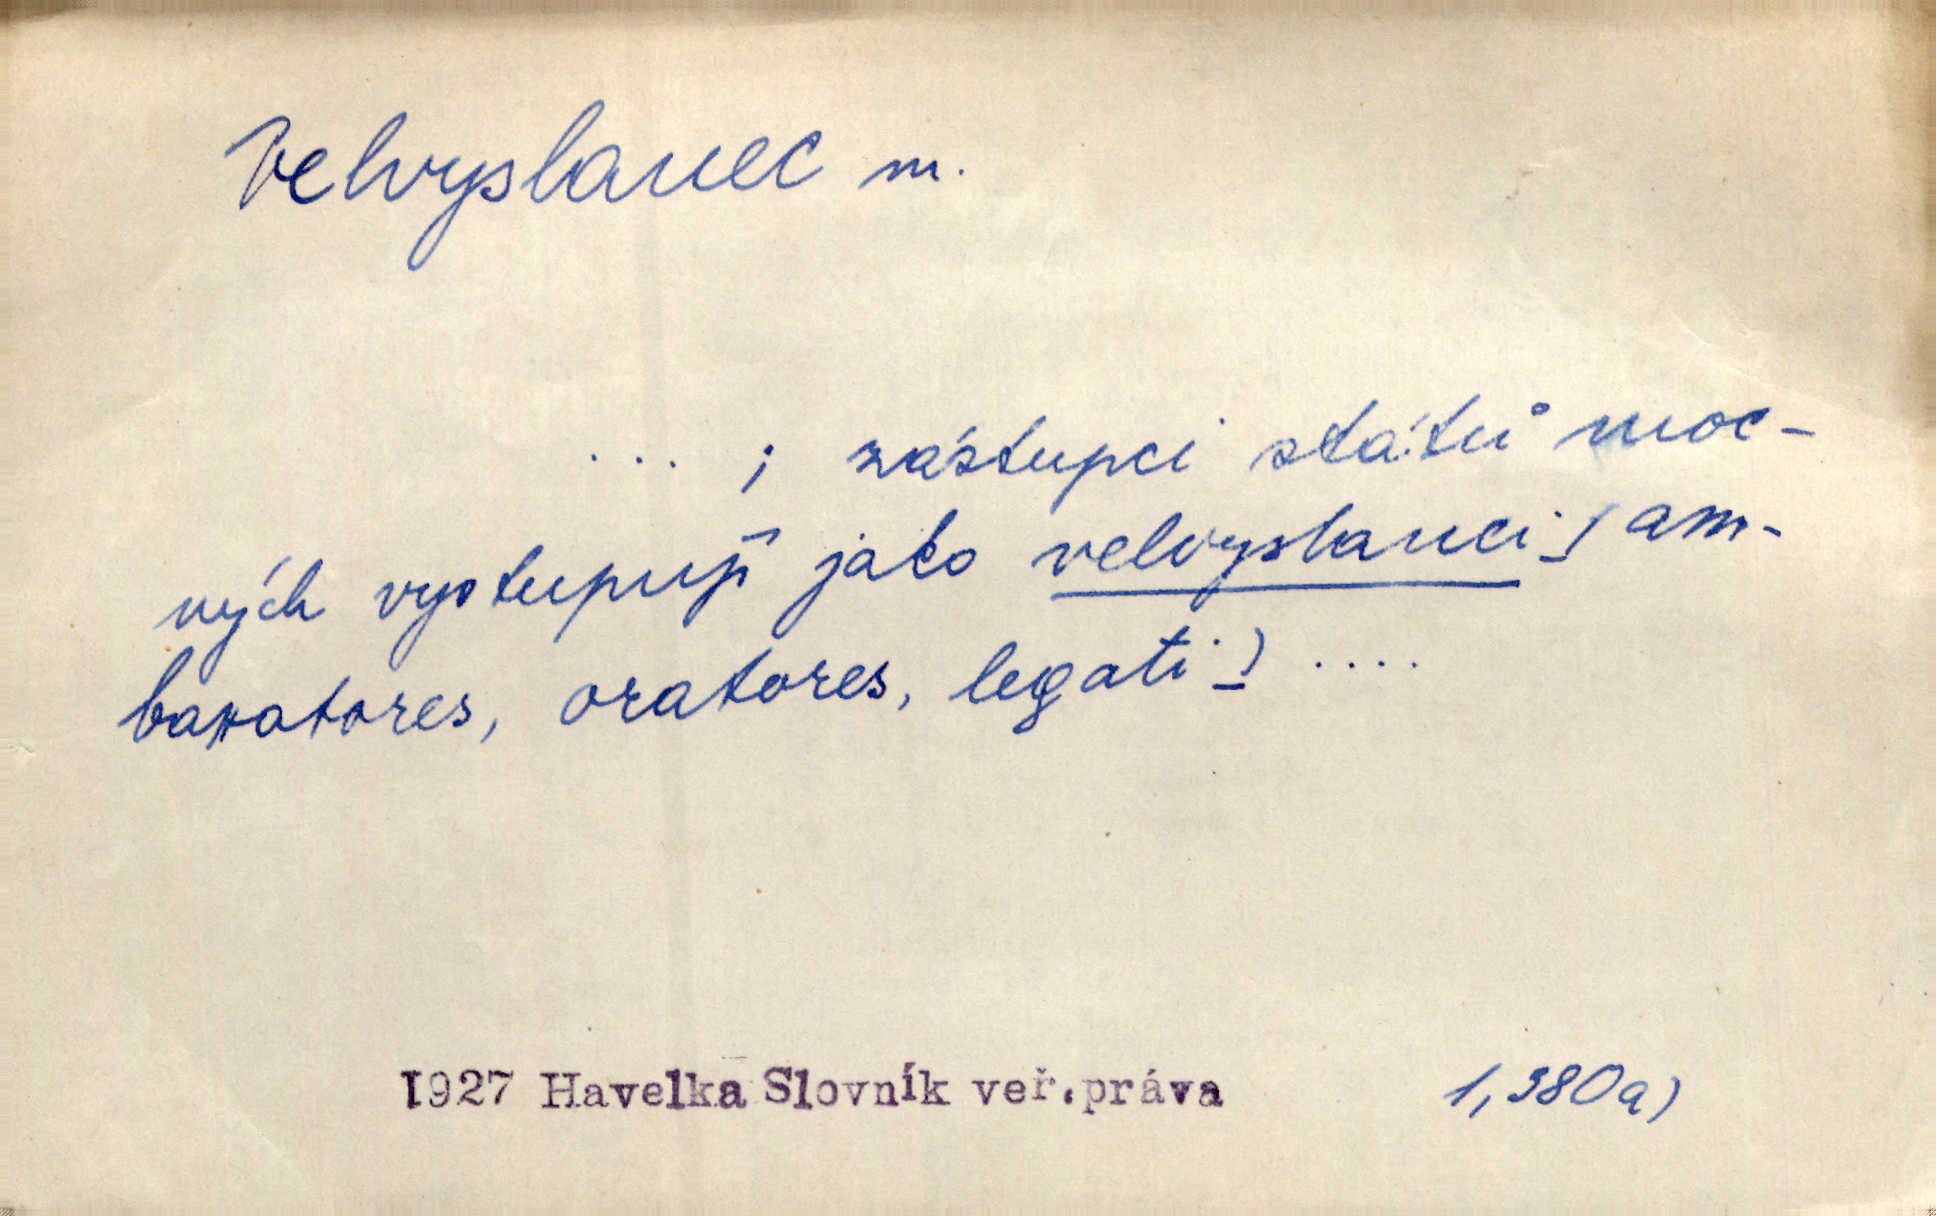 Velvyslanec m.
... ; zástupci států moc-
ných vystupují jako velvyslanci (am-
baxatores, oratores, legati) ....
1927 Havelka Slovník veř.práva 1,380a)